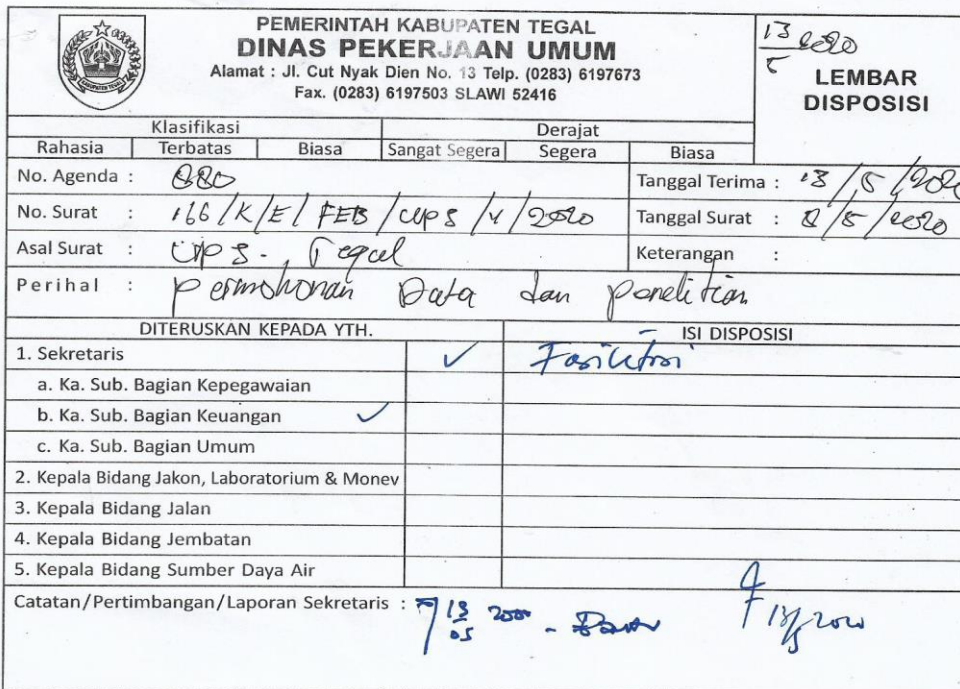 PEMERINTAH KABUPATEN TEGAL
DINAS PEKERJAAN UMUM
Alamat : Jl. Cut Nyak Dien No. 13 Telp. (0283) 6197673
Fax. (0283) 6197503 SLAWI 52416
KABUPATEN TEGAL
13/5 2020
LEMBAR
DISPOSISI
Klasifikasi Derajat
Rahasia Terbatas Biasa Sangat Segera Segera Biasa
No. Agenda : 880 Tanggal Terima : 13/5/2020
No. Surat : 166/K/E/FEB/UPS/V/2020 Tanggal Surat : 8/5/2020
Asal Surat : UPS. Tegal Keterangan :
Perihal : Permohonan Data dan penelitian
DITERUSKAN KEPADA YTH. ISI DISPOSISI
1. Sekretaris ✓ Fasilitasi
a. Ka. Sub. Bagian Kepegawaian
b. Ka. Sub. Bagian Keuangan ✓
c. Ka. Sub. Bagian Umum
2. Kepala Bidang Jakon, Laboratorium & Monev
3. Kepala Bidang Jalan
4. Kepala Bidang Jembatan
5. Kepala Bidang Sumber Daya Air
Catatan/Pertimbangan/Laporan Sekretaris : 13/05 2020 - 13/5 2020